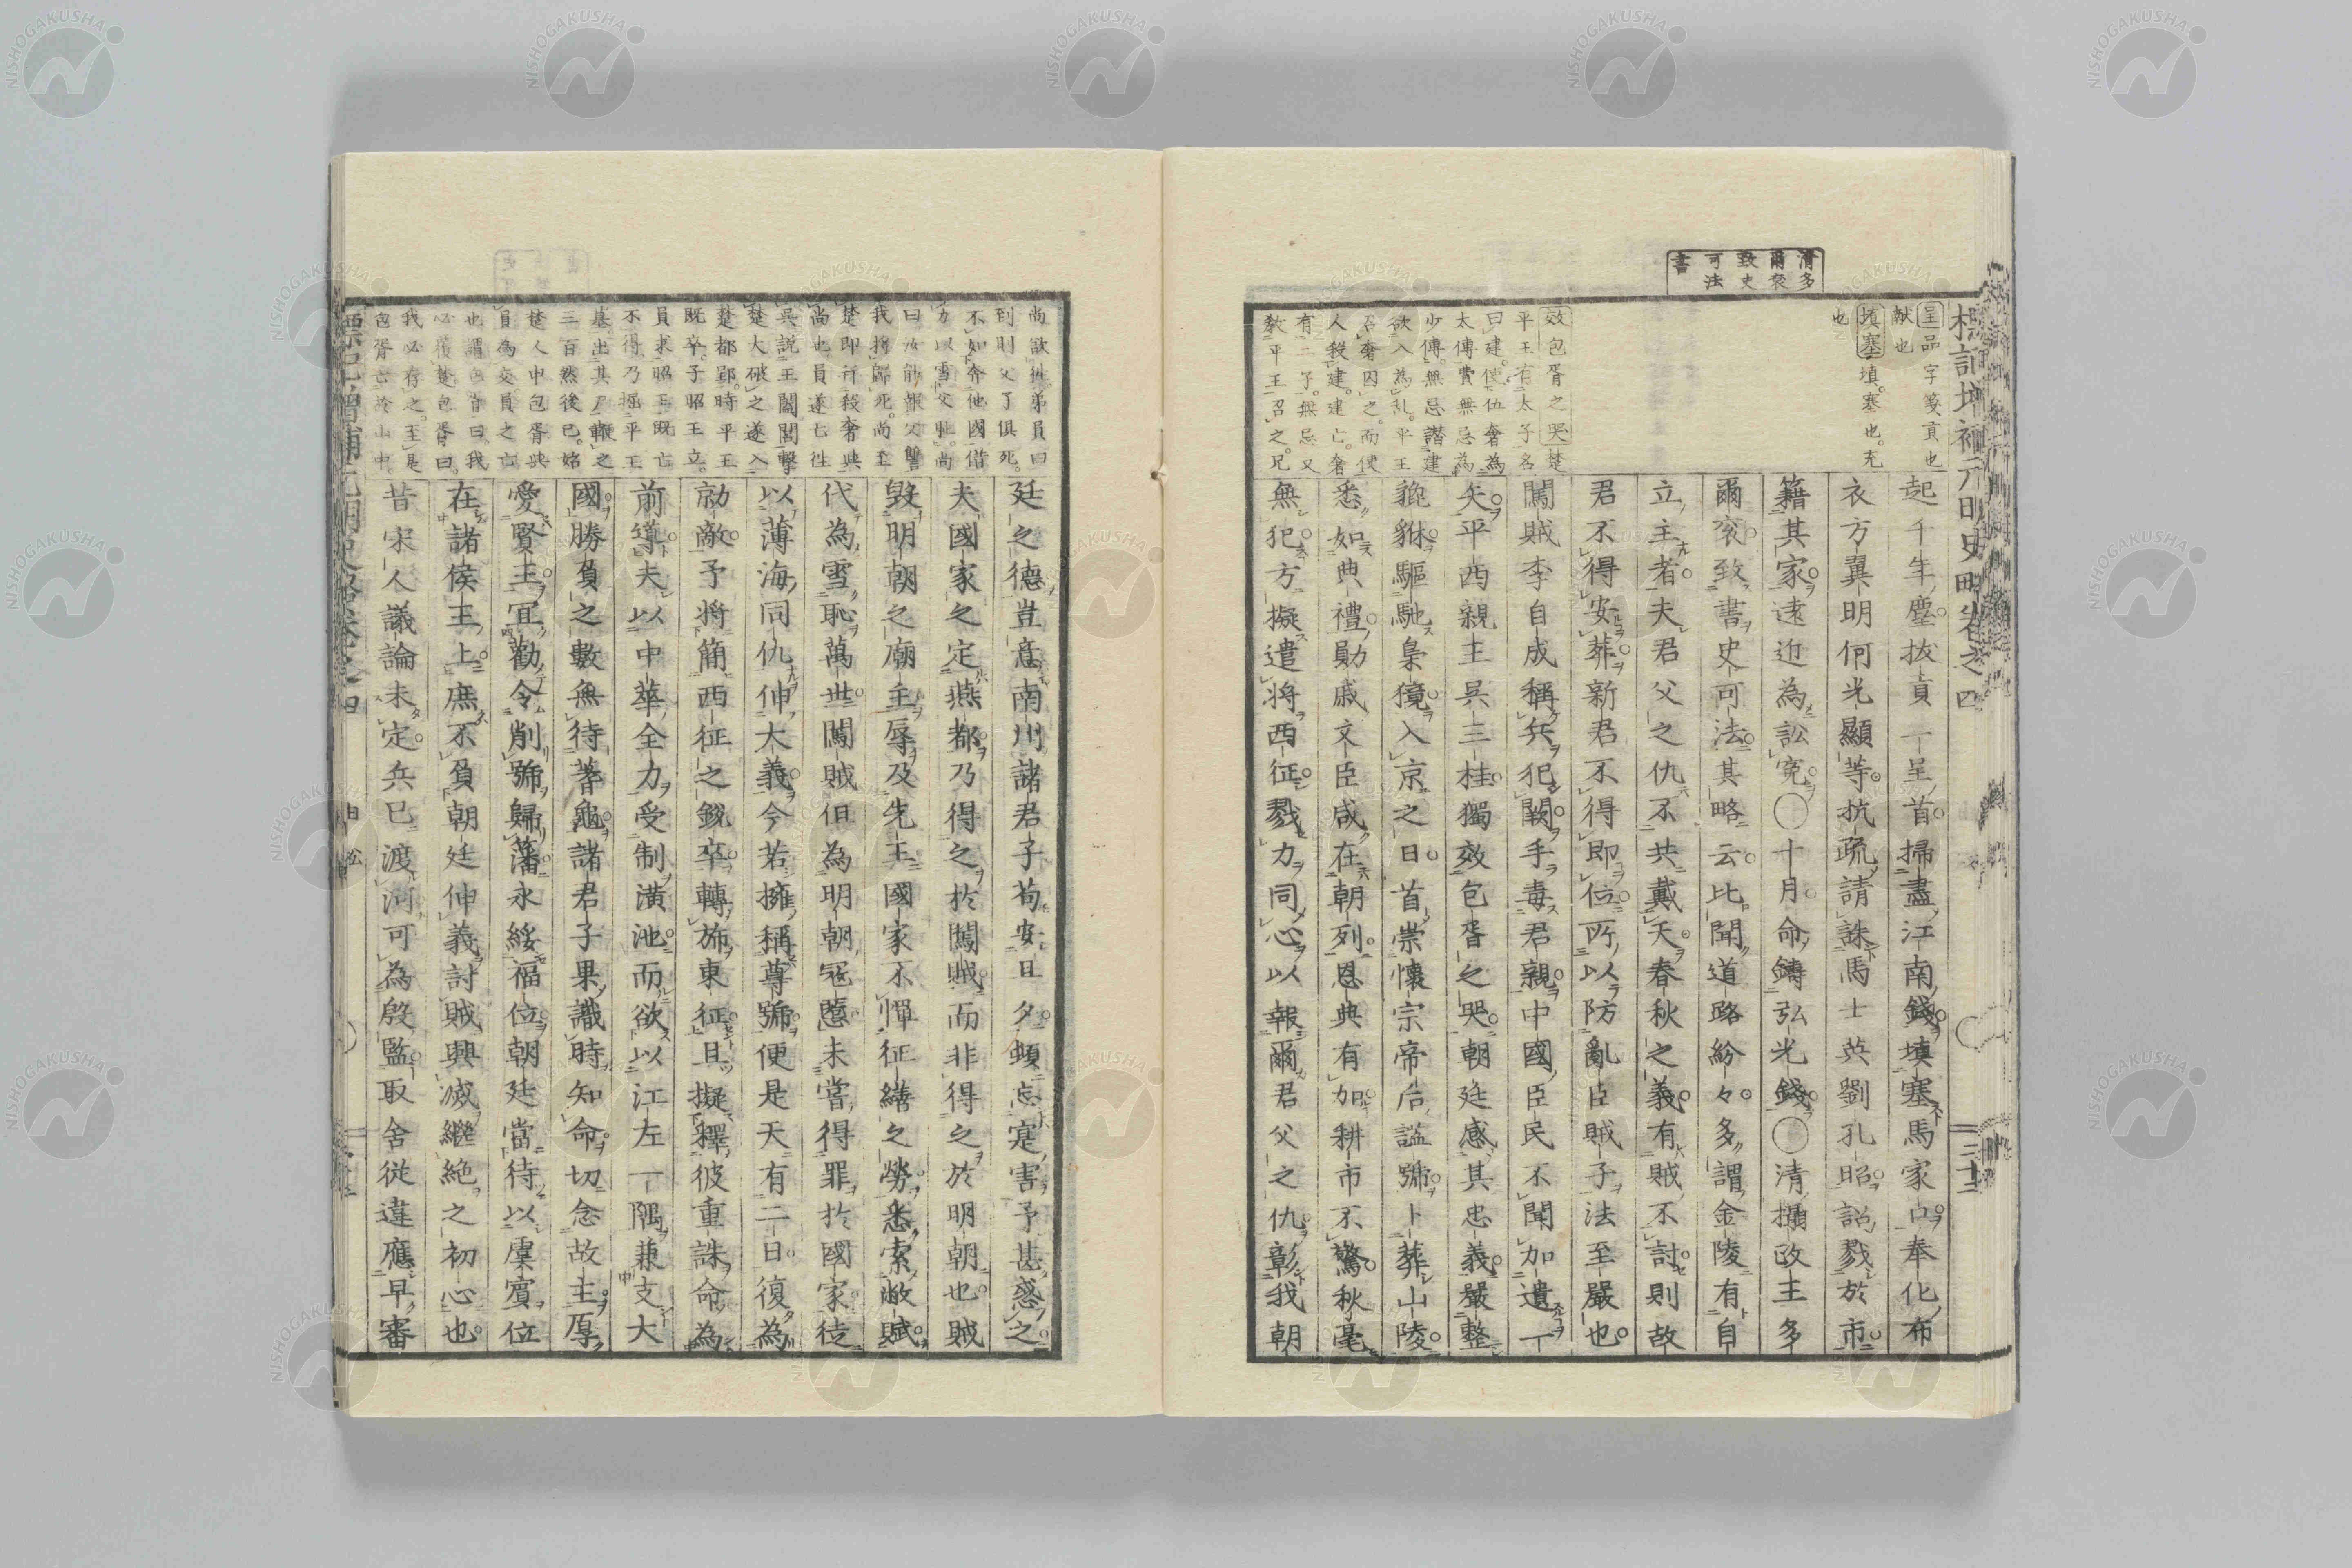 標記増補元明史略卷之四
三十二
清多
爾袞
致史
可法
書
呈品字箋貢也
献也
填塞填塞也充
也
效包胥之哭楚
平王有太子名
曰建使伍奢為
太傅費無忌為
少傅無忌譖建
欲入為亂平王
召奢囚之而使
人殺建建亡奢
有二子無忌又
敎平王召之兄
起千年塵拔貢一呈首掃盡江南錢填塞馬家口奉化布
衣方翼明何光顯等抗疏請誅馬士英劉孔昭詔戮於市
籍其家遠近為訟寃〇十月命鑄弘光錢〇清攝政王多
爾袞致書史可法其略云比聞道路紛々多謂金陵有自
立主者夫君父之仇不共戴天春秋之義有賊不討則故
君不得安葬新君不得即位所以防亂臣賊子法至嚴也
闖賊李自成稱兵犯闕手毒君親中國臣民不聞加遺一
矢平西親王吳三桂獨效包胥之哭朝廷感其忠義嚴整
貔貅驅馳梟獍入京之日首崇懷宗帝后謚號卜葬山陵
悉如典禮勛戚文臣咸在朝列恩典有加耕市不驚秋毫
無犯方擬遣將西征戮力同心以報爾君父之仇彰我朝
尚欲徃弟員曰
到則父子俱死
不如奔他國借
力以雪父恥尚
曰汝能報父讐
我將歸死尚至
楚即幷殺奢與
尚也員遂亡徃
吳說王闔閭擊
楚大破之遂入
楚都郢時平王
既卒子昭王立
員求昭王既亡
不得乃掘平王
墓出其尸鞭之
三百然後已始
楚人申包胥與
員為交員之亡
也謂包胥曰我
必覆楚包胥曰
我必存之至是
包胥亡於山中
廷之德豈意南州諸君子苟安旦夕頓忘寔害予甚惑之
夫國家之定燕都乃得之於闖賊而非得之於明朝也賊
毀明朝之廟主辱及先王國家不憚征繕之勞悉索敝賦
代為雪恥萬世闖賊但為明朝冦慝未嘗得罪於國家徒
以薄海同仇伸大義今若擁稱尊號便是天有二日復為
勍敵予將簡西征之銳卒轉斾東征且擬釋彼重誅命為
前導夫以中華全力受制潢池而欲以江左一隅兼支大
國勝負之數無待蓍龜諸君子果識時知命切念故主厚
愛賢王宜勸令削號歸藩永綏福位朝廷當待以虞賓位
在諸侯王上庶不負朝廷伸義討賊興滅繼絶之初心也
昔宋人議論未定兵已渡河可為殷監取舍從違應早審
標記増補元明史略卷之四